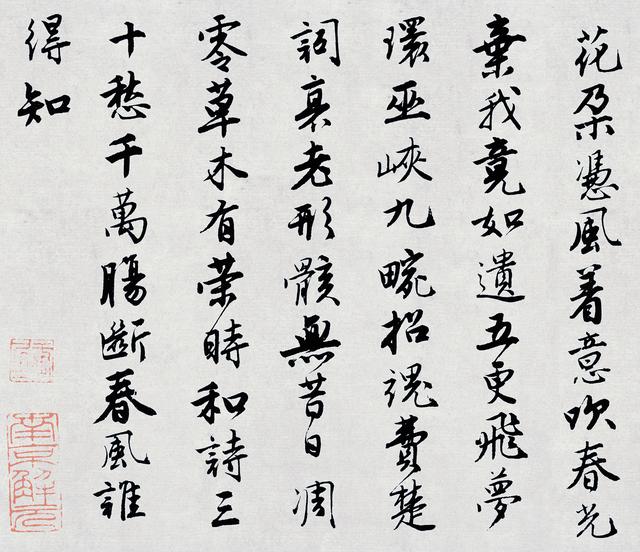 花朵慿風着意吹春光
棄我竟如遺五更飛夢
環巫峽九畹招魂費楚
詞衰老形骸無昔日凋
零草木有荣時和詩三
十愁千萬腸斷春風誰
得知
南京解元